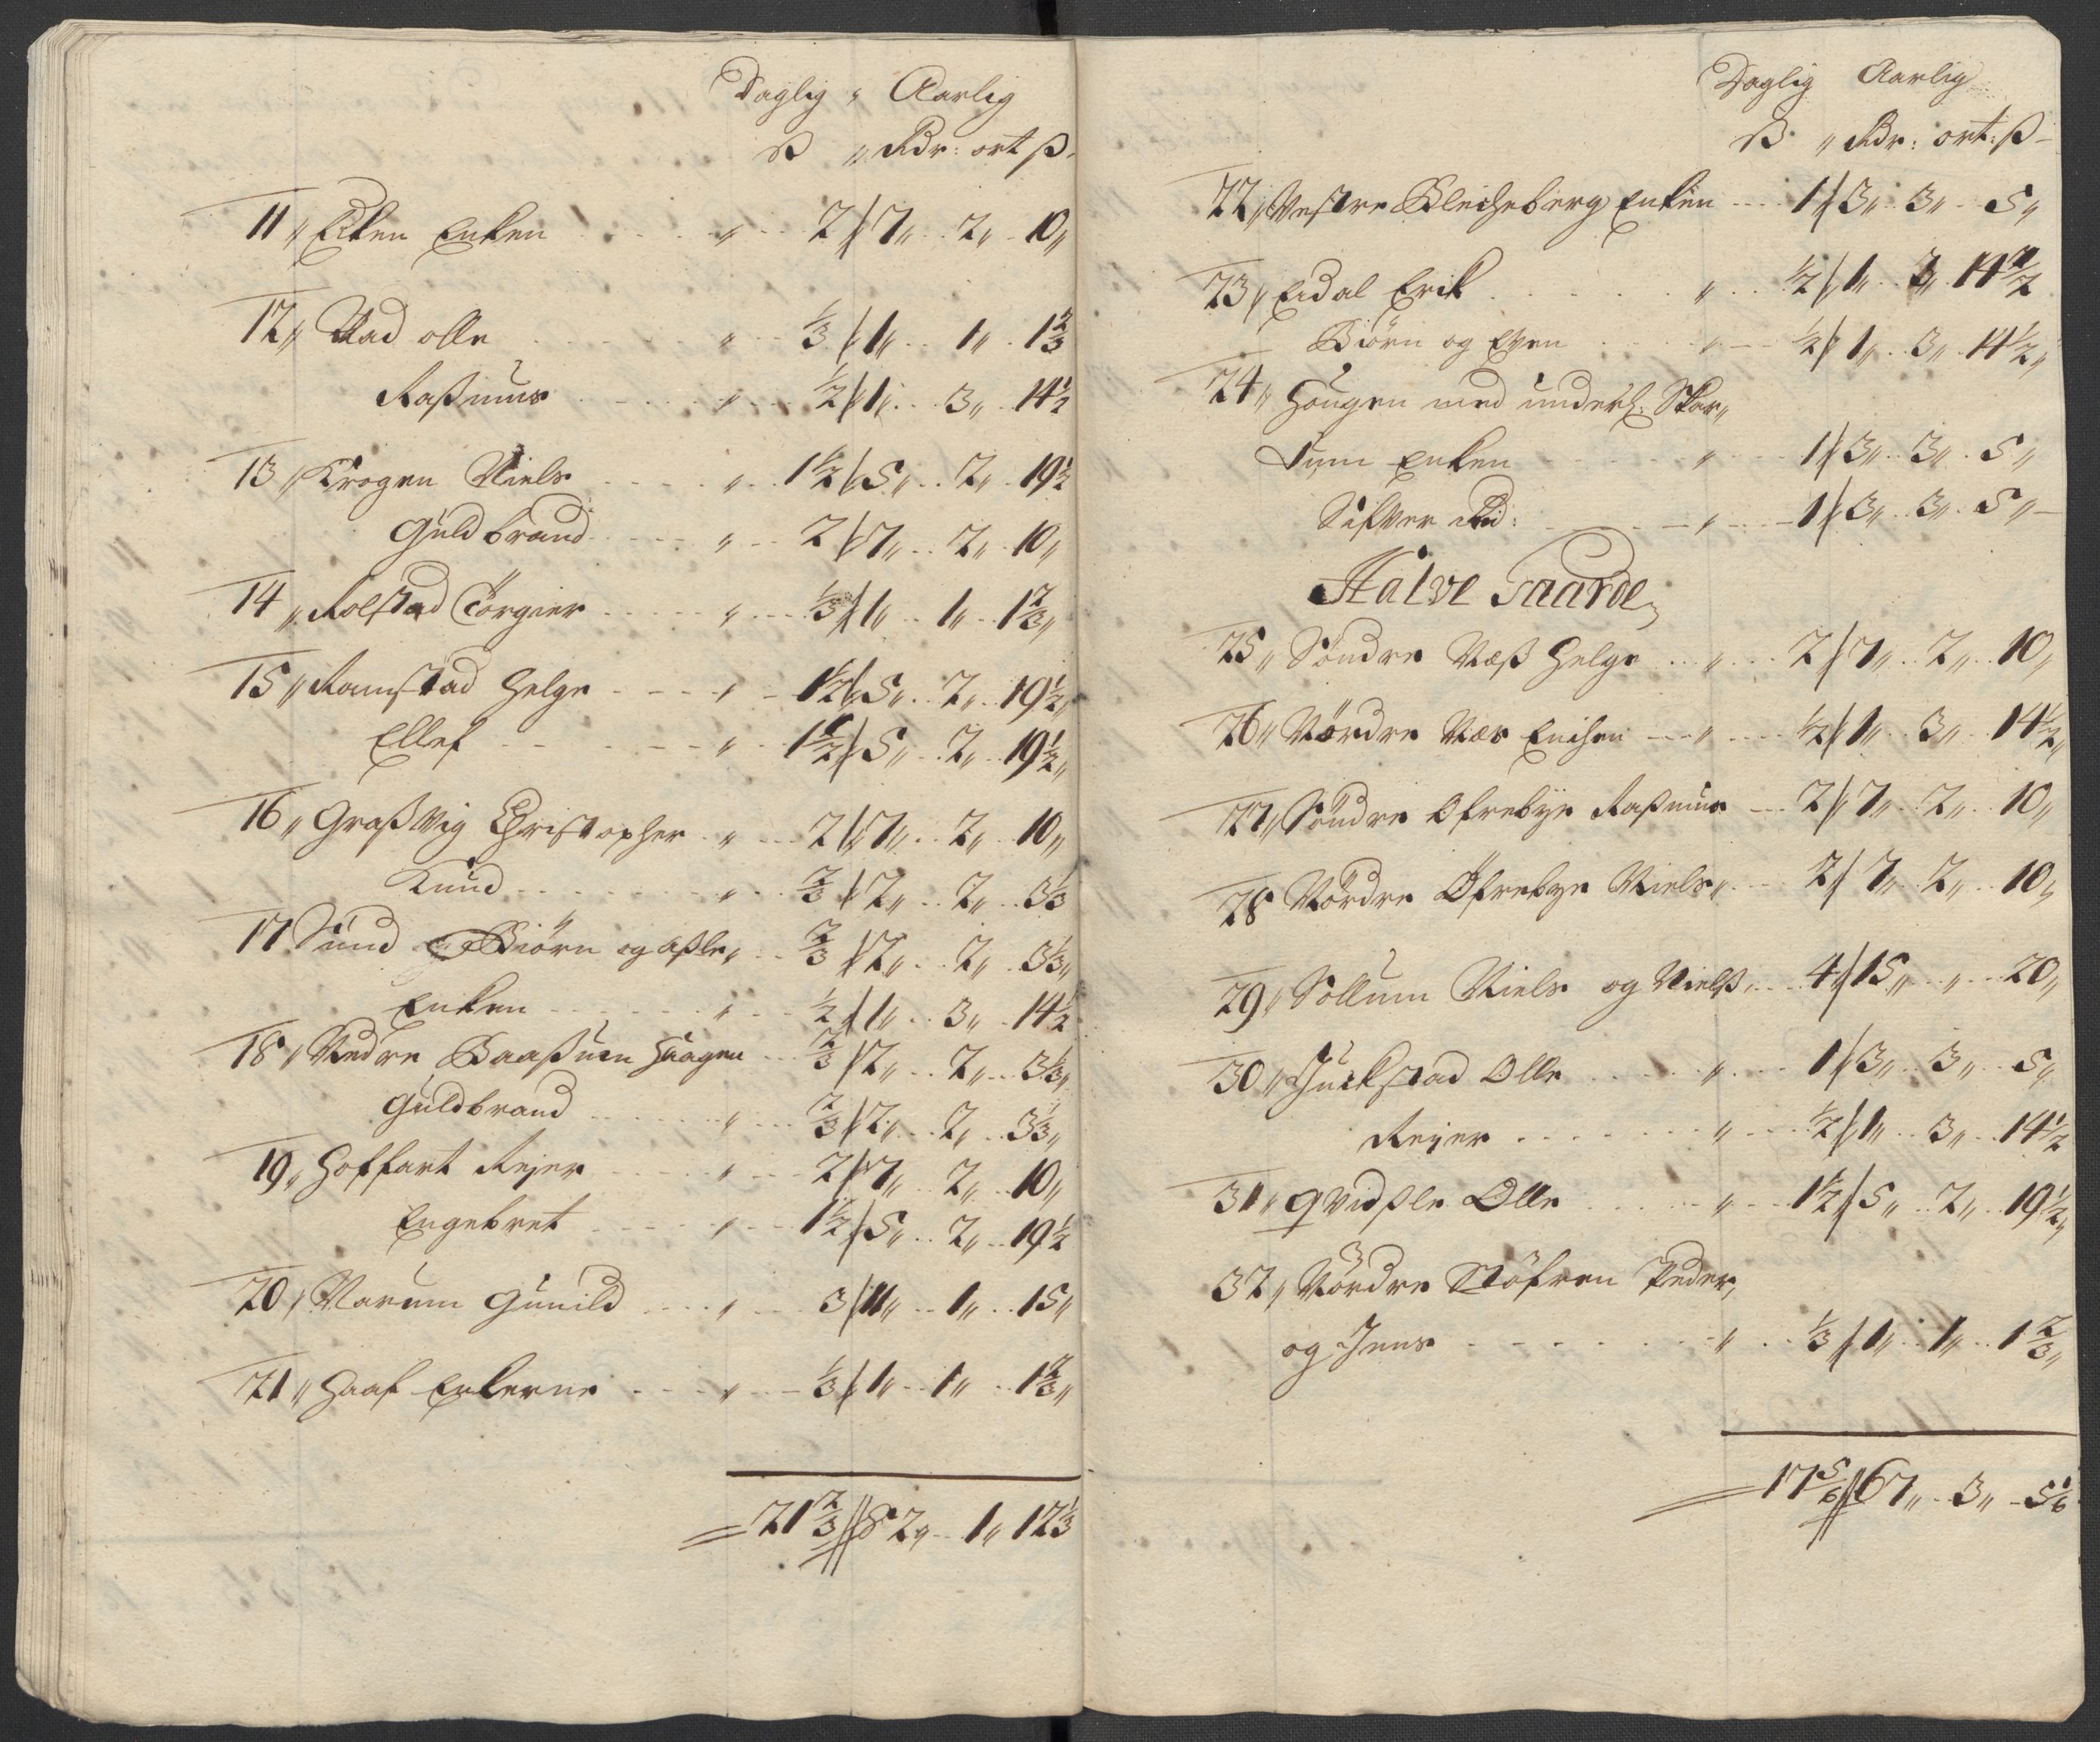 Daglig " Aarlig
ß " Rdr: ort ß
11 " Eiken Enken " 2 // 7 " 2 " 10 "
12 " Aad olle " 1/3 // 1 " 1 " 1 2/3
Raßmus " 1/2 // 1 " 3 " 14 1/2
13 " Krogen Niels " 1 1/2 // 5 " 2 " 19 1/2
Guldbrand " 2 // 7 " 2 " 10 "
14 " Rolstad Törgier " 1/3 // 1 " 1 " 1 2/3 "
15 " Ramstad Helge " 1 1/2 // 5 " 2 " 19 1/2 "
Ellef " 1 1/2 // 5 " 2 " 19 1/2 "
16 " Graßvig Christopher " 2 // 7 " 2 " 10 "
Knud " 2/3 // 2 " 2 " 3 1/3
17 Sund Biörn og aßle " 2/3 // 2 " 2 " 3 1/3 "
Enken " 1/2 // 1 " 3 " 14 1/2
18 " Nedre Baaßuen Haagen 2/3 // 2 " 2 " 3 1/3 "
Guldbrand " 2/3 // 2 " 2 " 3 1/3 "
19 " Hoffart Rejer " 2 // 7 " 2 " 10 "
Engebret " 1 1/2 // 5 " 2 " 19 1/2
20 " Narum Gunild " 3 // 11 " 1 " 15 "
21 " Haaf Enkerne " 1/3 // 1 " 1 " 1 2/3 "
21 2/3 // 82 " 1 " 12 1/3
Daglig Aarlig
ß " Rdr: ort: ß
22 " Vestre Bleigeberg Enken 1 // 3 " 3 " 5 "
23 " Eidal Erik " 1/2 // 1 " 3 " 14 1/2
Biörn og Even " 1/2 // 1 " 3 " 14 1/2 "
24 " Hougen med underl: Skar "
dum Enken " 1 // 3 " 3 " 5 "
Sifver " 1 // 3 " 3 " 5 "
Halve Gaarde
25 " Söndre Næß Helge " 2 // 7 " 2 " 10 "
26 " Nördre Næs Erichen " 1/2 // 1 " 3 " 14 1/2 "
27 " Söndre Ofrebye Raßmus 2 // 7 " 2 " 10 "
28 Nördre Öfrebye Niels " 2 // 7 " 2 " 10 "
29 " Sollum Niels og Nielß " 4 // 15 " " 20 "
30 " Juelstad Olle " 1 // 3 " 3 " 5 "
Rejer " 1/2 // 1 " 3 " 14 1/2
31 " qvidßle Olle " 1 1/2 // 5 " 2 " 19 1/2 "
32 " Nördre Stöfren Peder,
og Jens " 1/3 // 1 " 1 " 1 2/3 "
17 5/6 // 67 " 3 " 5 1/6